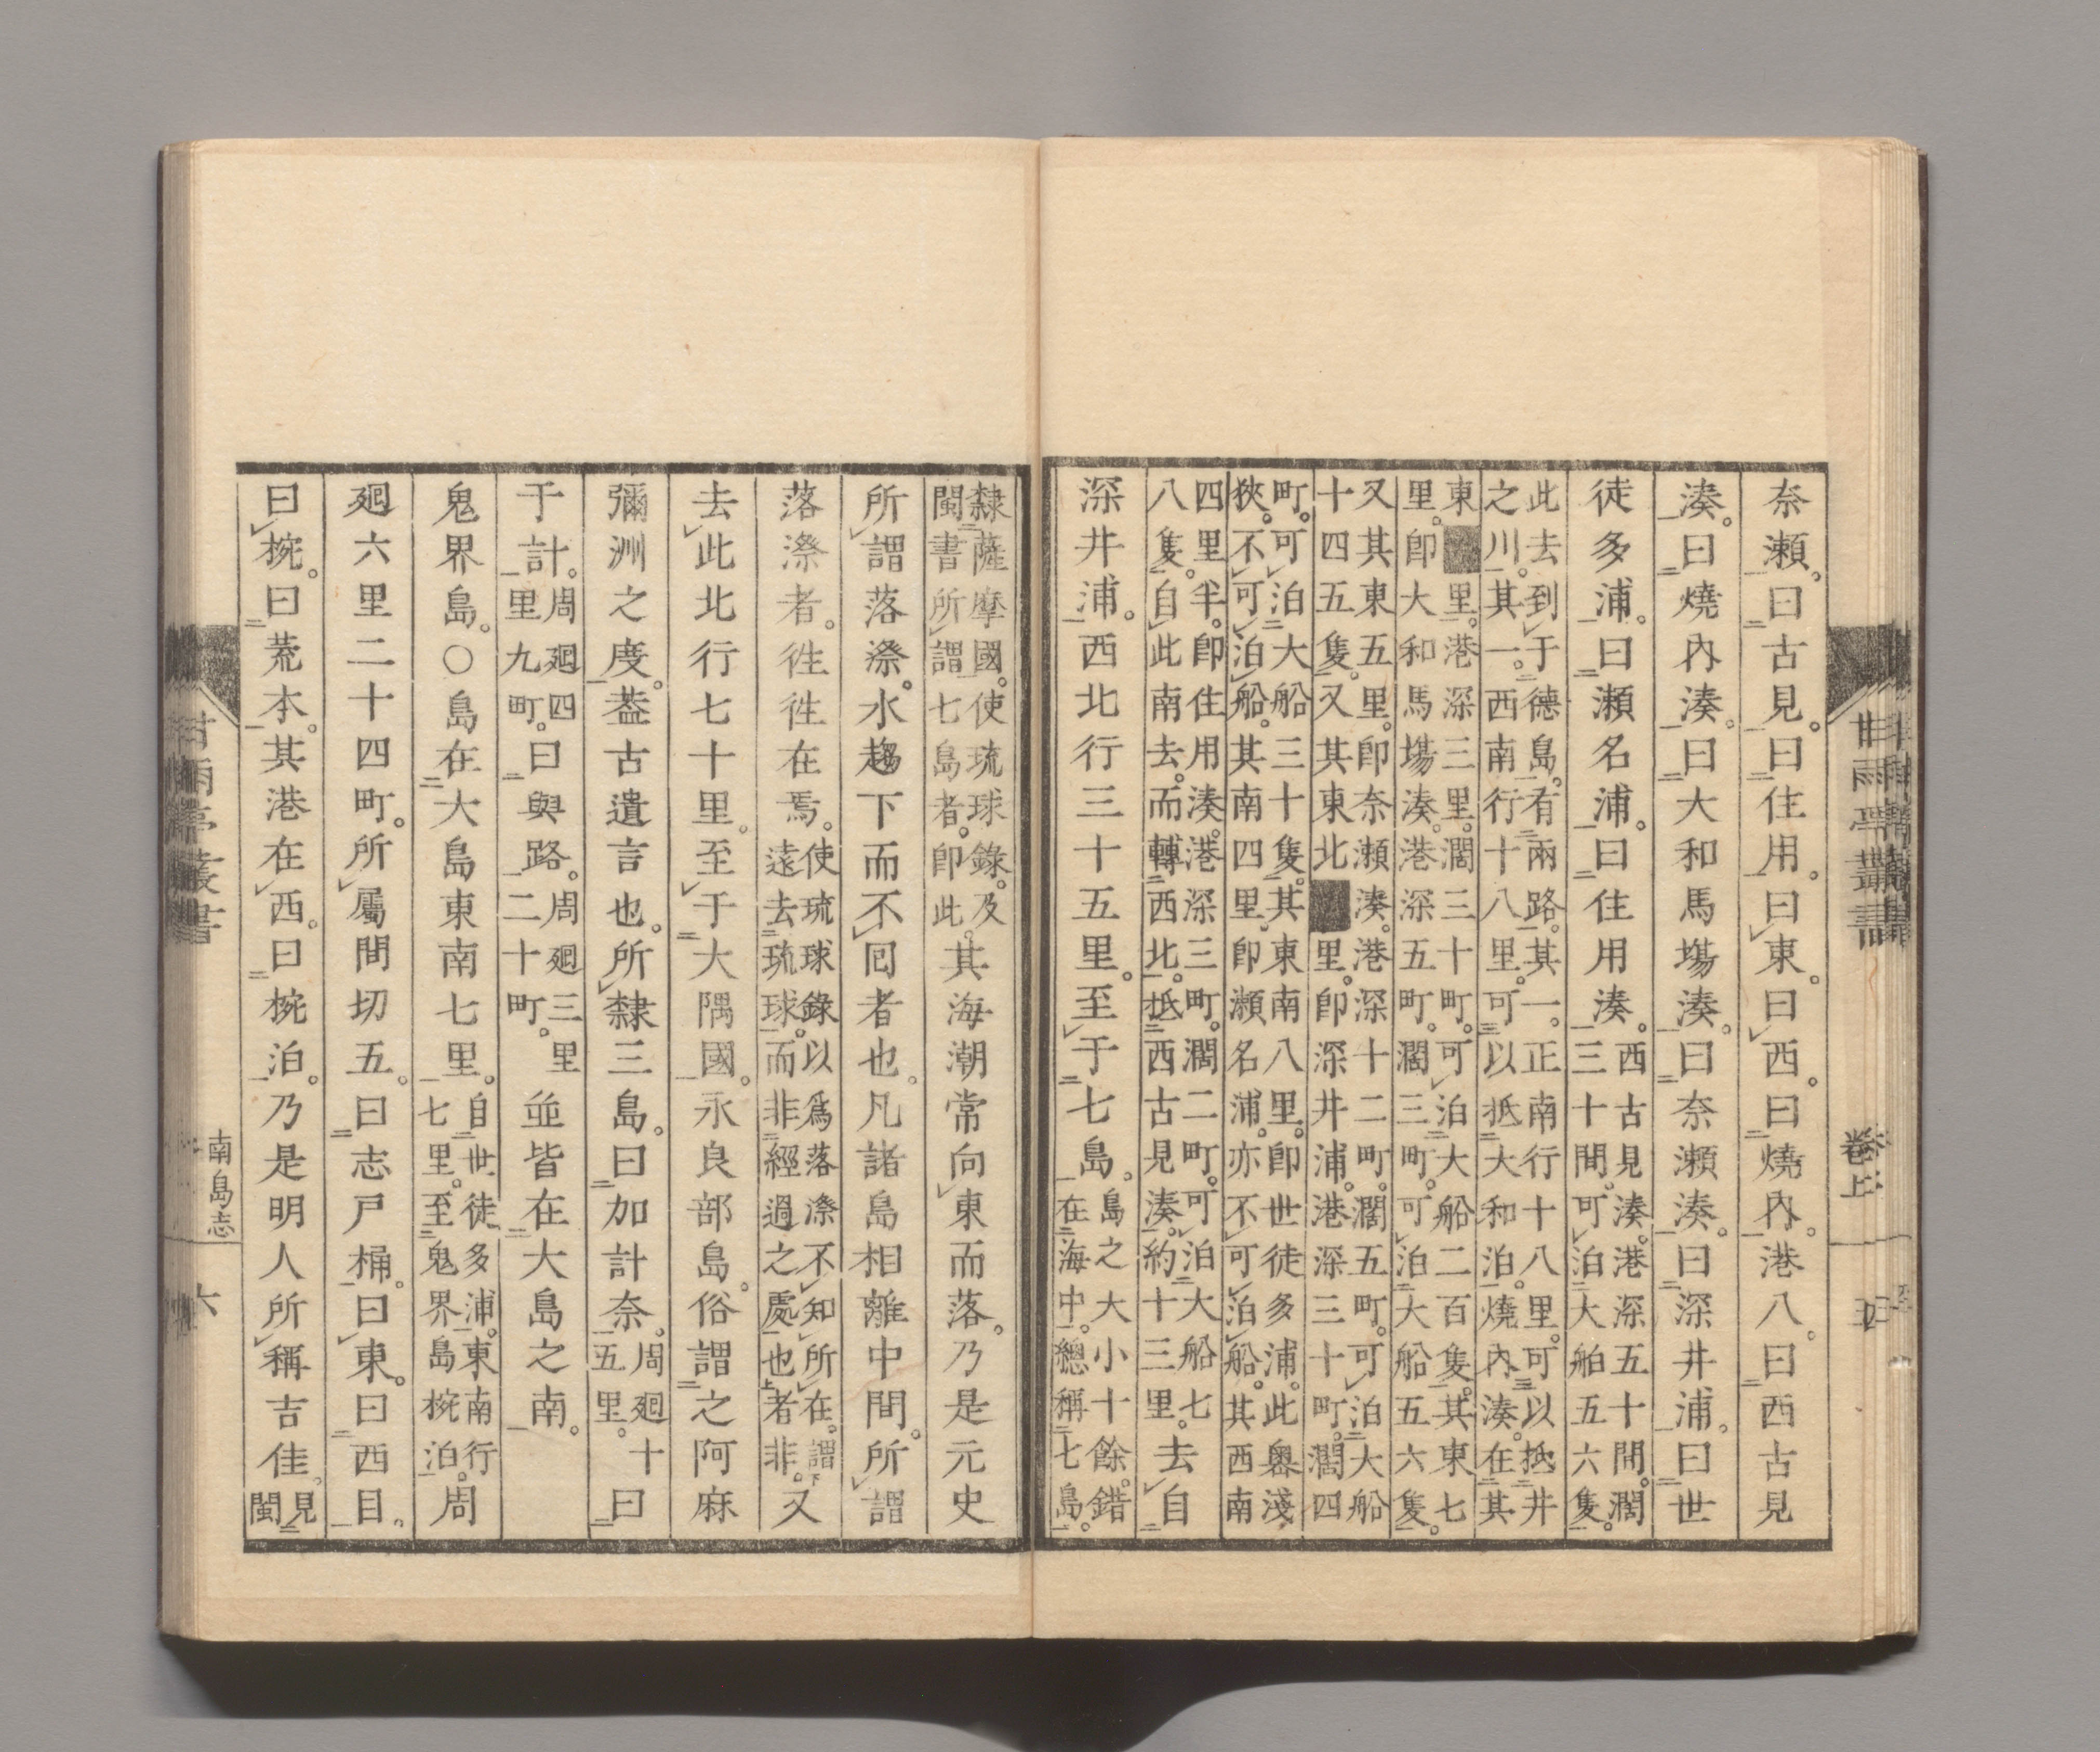 奈瀬。曰古見。曰住用。曰東。曰西。曰燒內。港八。曰西古見
湊。曰燒內湊。曰大和馬塲湊。曰奈瀬湊。曰深井浦。曰世
徒多浦。曰瀬名浦。曰住用湊。
西古見湊。港深五十間。濶
三十間。可泊大舶五六隻。
此去到于德島。有兩路。其一。正南行十八里。可以抵井
之川。其一。西南行十八里。可以抵大和泊。燒內湊。在其
東■里。港深三里。濶三十町。可泊大船二百隻。其東七
里。卽大和馬塲湊。港深五町。濶三町。可泊大船五六隻。
又其東五里。卽奈瀬湊。港深十二町。濶五町。可泊大船
十四五隻。又其東北■里。卽深井浦。港深三十町。濶四
町。可泊大船三十隻。其東南八里。卽世徒多浦。此奧淺
狹。不可泊船。其南四里。卽瀬名浦。亦不可泊船。其西南
四里半。卽住用湊。港深三町。濶二町。可泊大船七
八隻。自此南去。而轉西北。抵西古見湊。約十三里。
去自
深井浦。西北行三十五里。至于七島。
島之大小十餘。錯
在海中。總稱七島。
隸薩摩國。使琉球錄。及
閩書所謂七島者。卽此。
其海潮常向東而落。乃是元史
所謂落漈。水趨下而不囘者也。凡諸島相離中間。所謂
落漈者。徃徃在焉。
使琉球錄。以爲落漈不知所在。謂
遠去琉球。而非經過之處也者非。
又
去此北行七十里。至于大隅國。永良部島。俗謂之阿麻
彌洲之度。葢古遺言也。所隸三島。曰加計奈。
周廻十
五里。
曰
于計。
周廻四
里九町。
曰與路。
周廻三里
二十町。
竝皆在大島之南。
鬼界島。〇島在大島東南七里。
自世徒多浦。東南行
七里。至鬼界島椀泊。
周
廻六里二十四町。所屬間切五。曰志戸桶。曰東。曰西目。
曰椀。曰荒本。其港在西。曰椀泊。乃是明人所稱吉佳。
見
閩
甘雨亭叢書
卷上
南島志
六